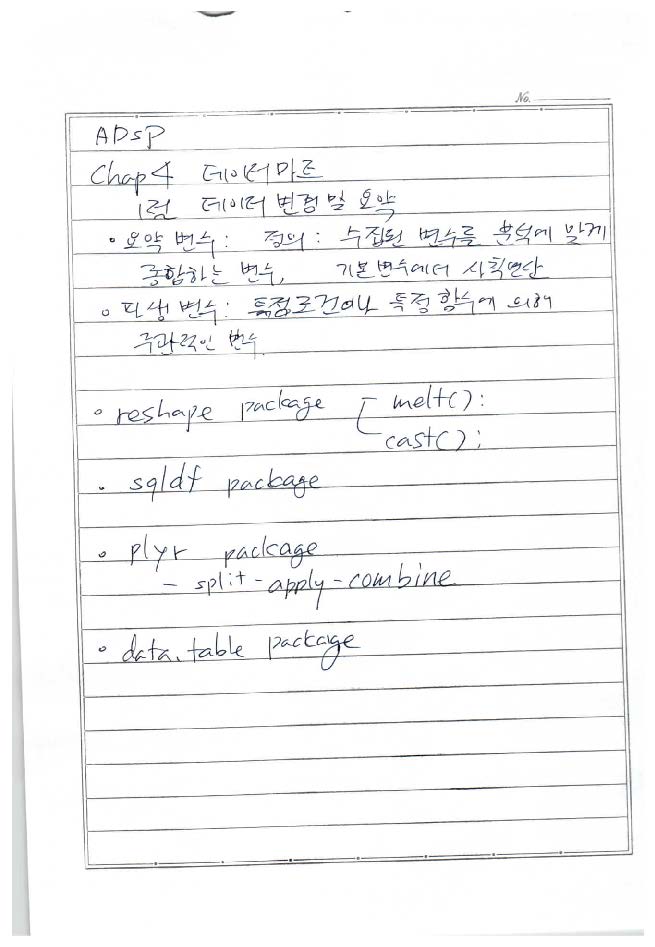 No.
ADsP
Chap 4 데이터마트
1절 데이터 변경 및 요약
• 요약 변수 : 정의 : 수집된 변수를 분석에 맞게
종합하는 변수, 기본변수에서 사칙연산
• 파생 변수 : 특정조건이나 특정함수에 의해
주관적인 변수.
• reshape package melt() :
cast() ;
• sqldf package
• plyr package
- split-apply-combine
• data.table package